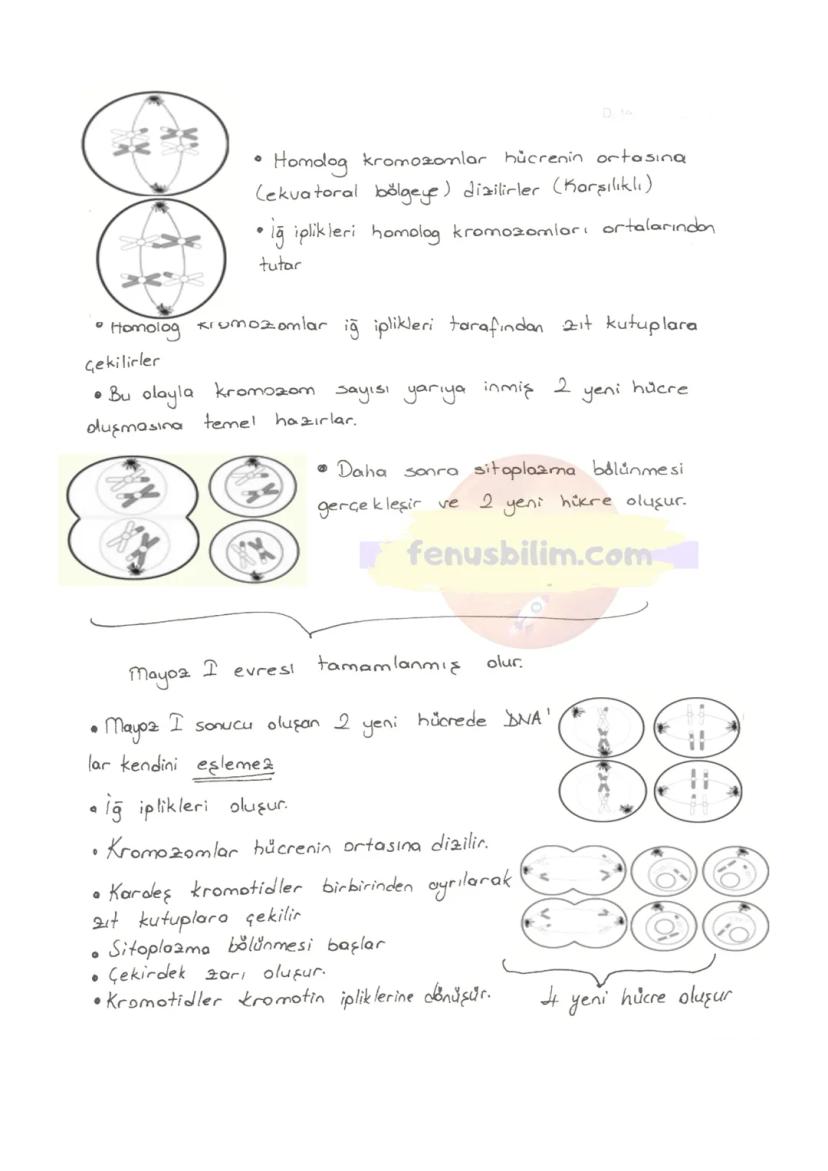 • Homolog kromozomlar hücrenin ortasına
(ekvatoral bölgeye) dizilirler (Karşılıklı)
• iğ iplikleri homolog kromozomları ortalarından
tutar
• Homolog kromozomlar iğ iplikleri tarafından zıt kutuplara
çekilirler
• Bu olayla kromozom sayısı yarıya inmiş 2 yeni hücre
oluşmasına temel hazırlar.
• Daha sonra sitoplazma bölünmesi
gerçekleşir ve 2 yeni hücre oluşur.
fenusbilim.com
Mayoz I evresi tamamlanmış olur.
• Mayoz I sonucu oluşan 2 yeni hücrede DNA'
lar kendini eşlemez
• iğ iplikleri oluşur.
• Kromozomlar hücrenin ortasına dizilir.
• Kardeş kromotidler birbirinden ayrılarak
zıt kutuplara çekilir
• Sitoplazma bölünmesi başlar
• Çekirdek zarı oluşur.
• Kromotidler kromotin ipliklerine dönüşür.
4 yeni hücre oluşur